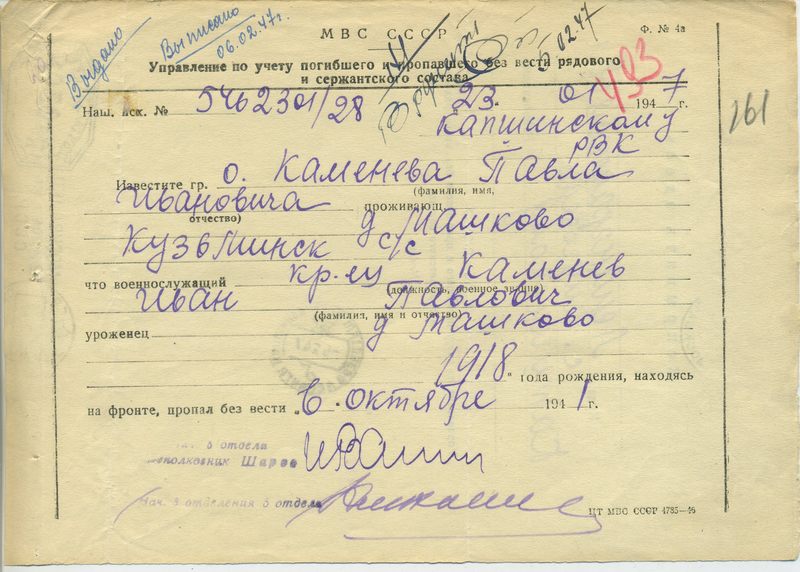 МВС СССР
Ф. № 4а
Выдано
Выписано
06.02.47г.
5 02.47
Управление по учету погибшего и пропавшего без вести рядового
и сержантского состава
403
Наш. исх. № 546230/28 23. 01 1947 г.
161
Капшинскому
РВК
Известите гр. о. Каменева Павла
(фамилия, имя,
Ивановича проживающ.
отчество)
д. Машково
Кузьминск с/с
что военнослужащий кр-ец Каменев
(должность, военное звание)
Иван Павлович
(фамилия, имя и отчество)
уроженец д Машково
1918 года рождения, находясь
на фронте, пропал без вести „в октябре 1941 г.
5 отдела
полковник
Нач. 3 отделения 5 отдела
ЦТ МВС СССР 4785—46